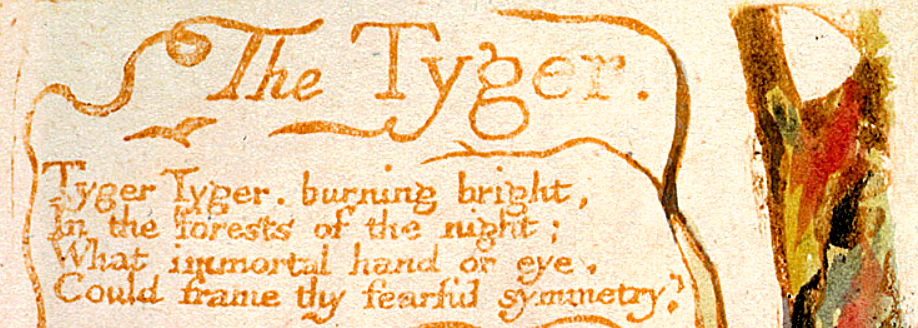 The Tyger.
Tyger Tyger. burning bright,
In the forests of the night;
What immortal hand or eye.
Could frame thy fearful symmetry?